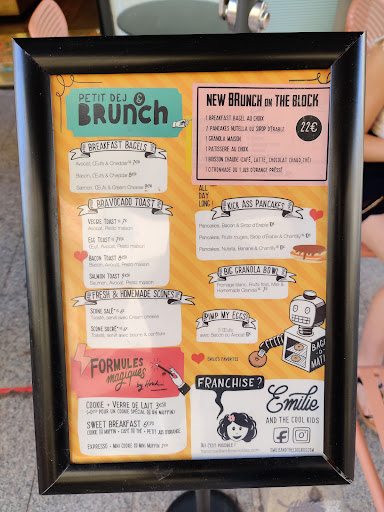 PETIT DEJ &
BRUNCH
BREAKFAST BAGELS
Avocat, Œufs & Cheddar
Bacon, Œufs & Cheddar
Saumon, Œufs & Cream Cheese
BRAVOCADO TOAST
VEGGIE TOAST
Avocat, Pesto maison
EGG TOAST
Œuf, Avocat, Pesto maison
BACON TOAST
Bacon, Avocat, Pesto maison
SALMON TOAST
Saumon, Avocat, Pesto maison
FRESH & HOMEMADE SCONES
SCONE SALÉ
Toasté, servi avec Cream cheese
SCONE SUCRÉ
Toasté, servi avec beurre & confiture
FORMULES
magiques
COOKIE + VERRE DE LAIT
SWEET BREAKFAST
COOKIE OU MUFFIN + CAFÉ OU THÉ + PETIT JUS D'ORANGE
EXPRESSO + MINI COOKIE OU MINI MUFFIN
NEW BRUNCH ON THE BLOCK
1 BREAKFAST BAGEL AU CHOIX
2 PANCAKES NUTELLA OU SIROP D'ÉRABLE
1 GRANOLA MAISON
1 PATISSERIE AU CHOIX
1 BOISSON CHAUDE (CAFÉ, LATTE, CHOCOLAT CHAUD, THÉ)
1 CITRONNADE OU 1 JUS D'ORANGE PRESSÉ
22€
ALL
DAY
LONG!
KICK ASS PANCAKES
Pancakes, Bacon & Sirop d'Erable
Pancakes, Fruits rouges, Sirop d'Erable & Chantilly
Pancakes, Nutella, Banane & Chantilly
BIG GRANOLA BOWL
Fromage blanc, Fruits frais, Miel &
Homemade Granola
PIMP MY EGGS
3 Œufs
avec Bacon ou Avocat
EMILIE'S FAVORITES
BAGEL
O
MATIC
FRANCHISE ?
OUI C'EST POSSIBLE !
Emilie
AND THE COOL KIDS
EMILIEANDTHECOOLKIDS.COM